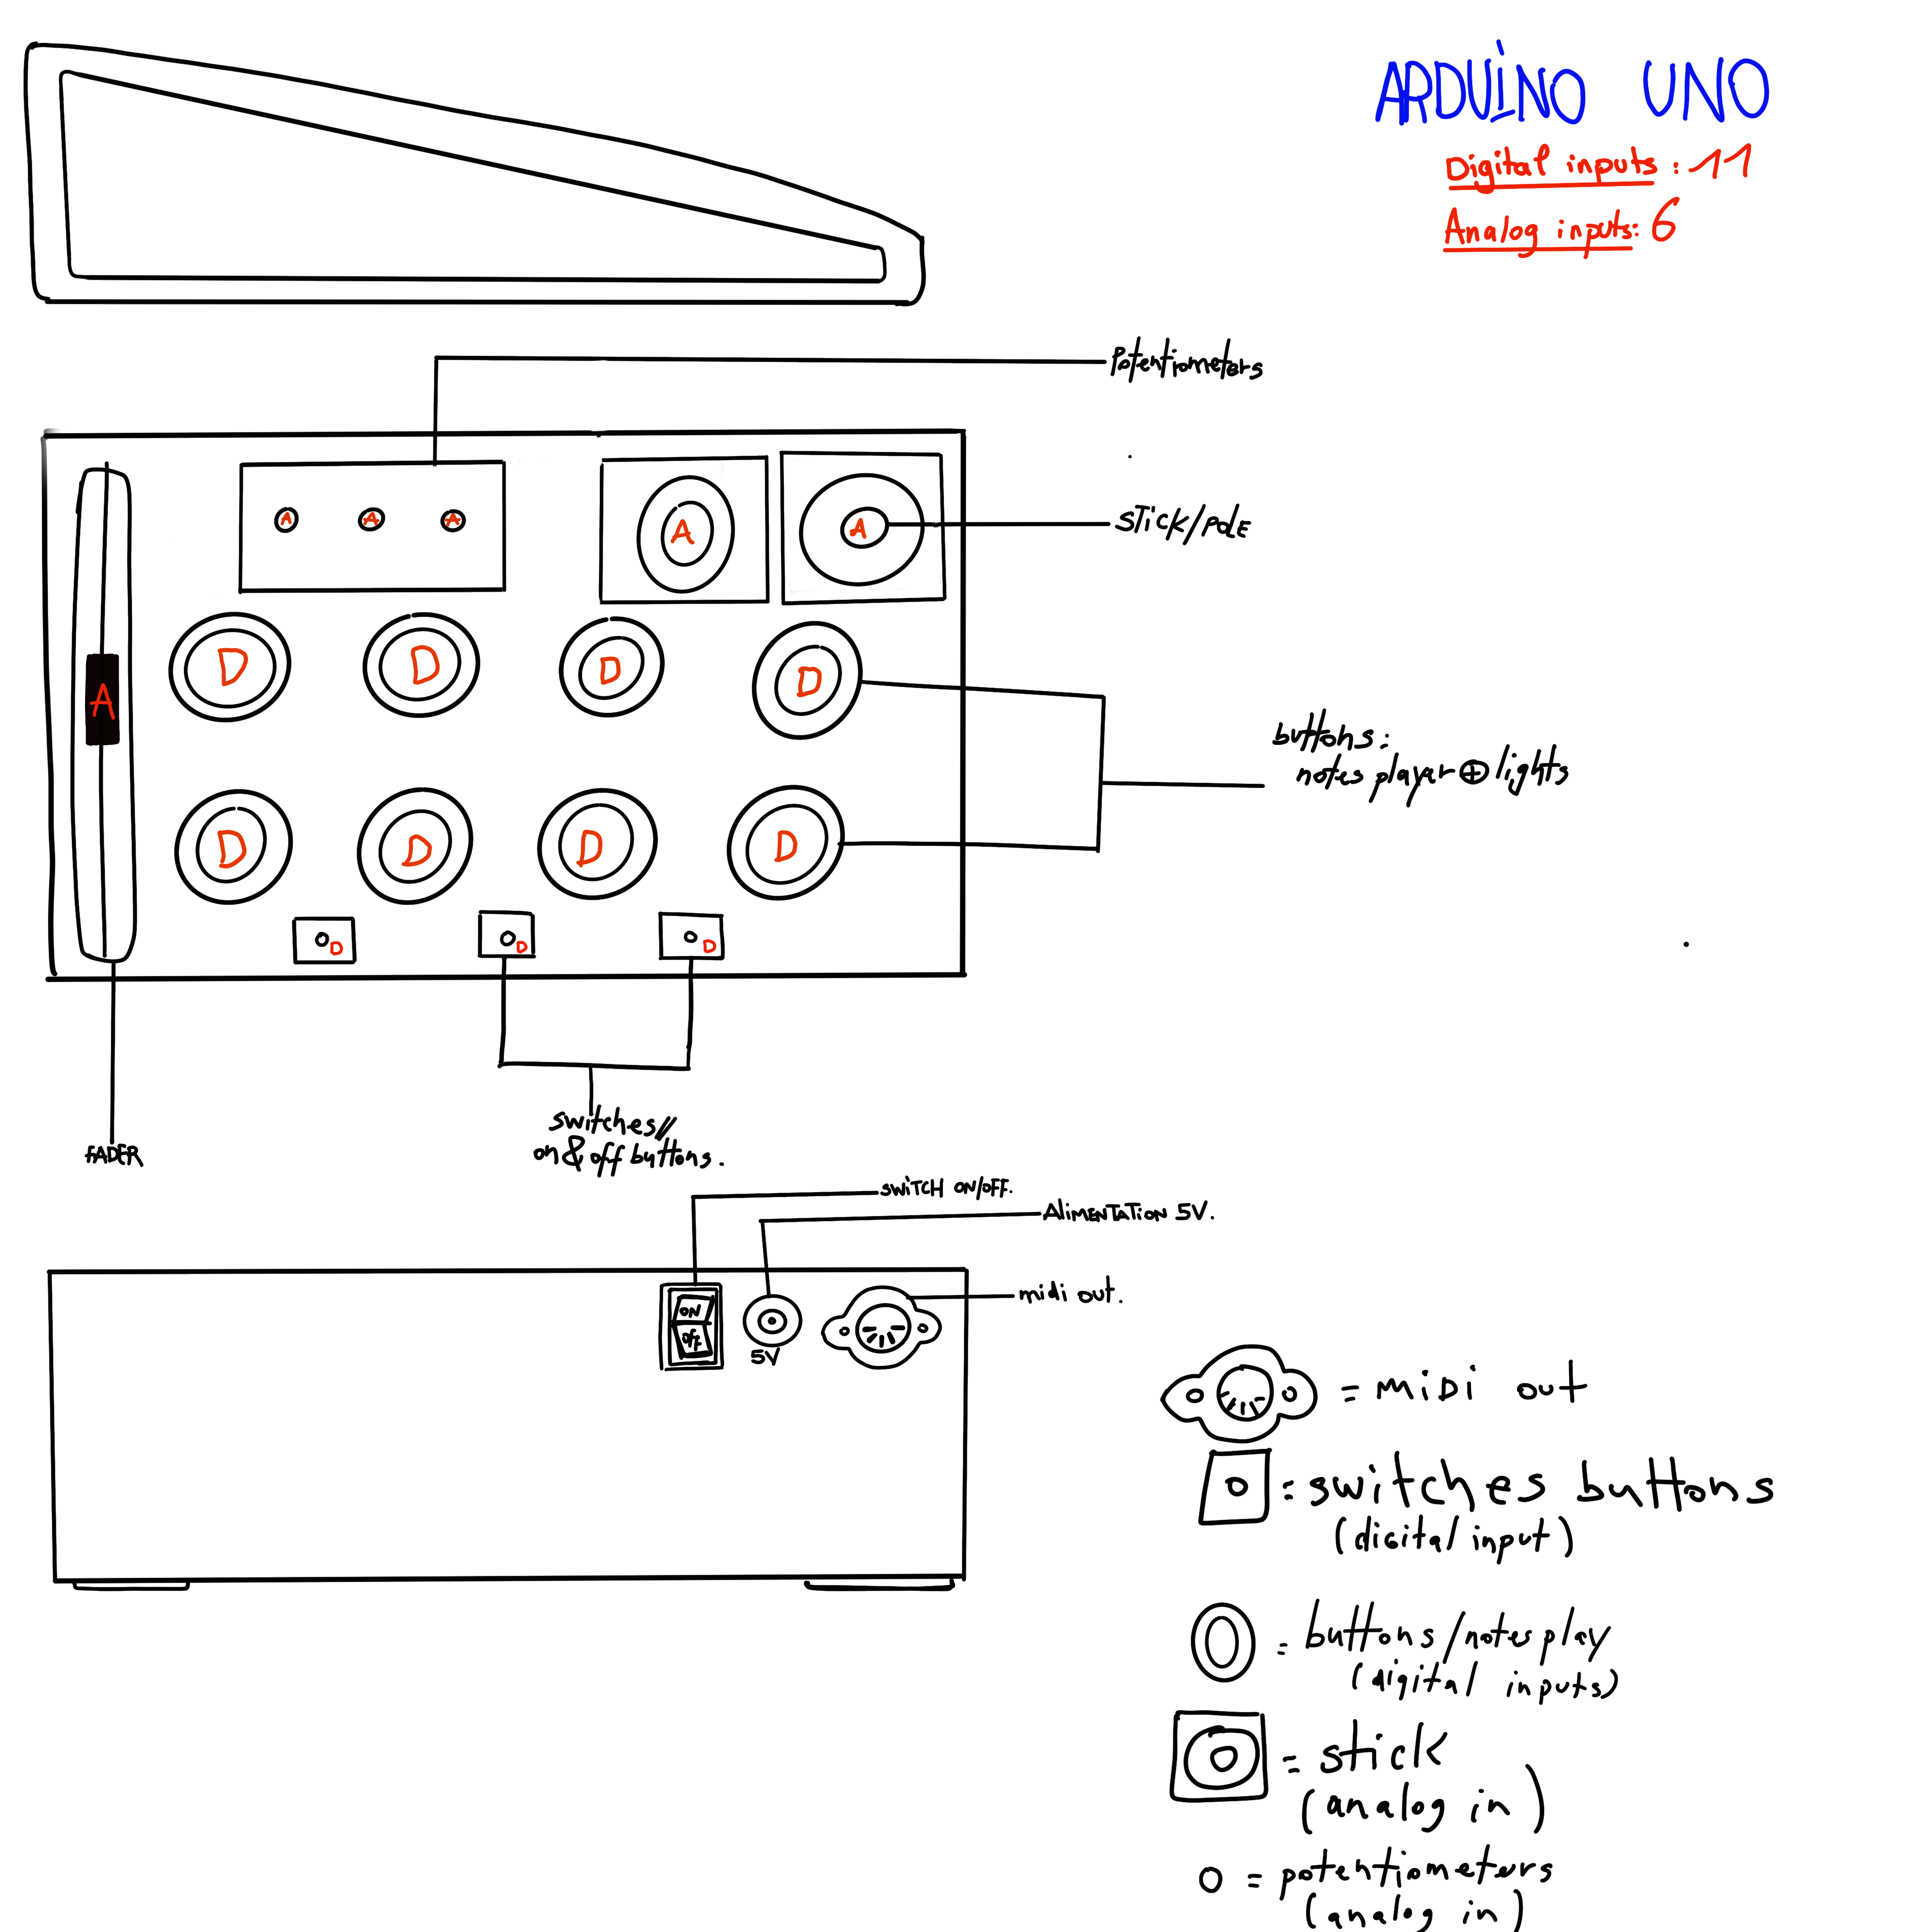 ARDUiNO UNO
Digital inputs : 11
Analog inputs: 6
Potentiometers
STiCK/POLE
A A A
A A
D D D D
A
buttons:
notes player ⊕ lights
D D D D
D D D
FADER
switches//
on & off buttons.
SWiTCH ON/OFF.
ALiMENTATiON 5V.
midi out.
ON
OFF
5V
= MiDi out
= switches buttons
(digital input)
= buttons/notes play
(digital inputs)
= stick
(analog in)
= potentiometers
(analog in)